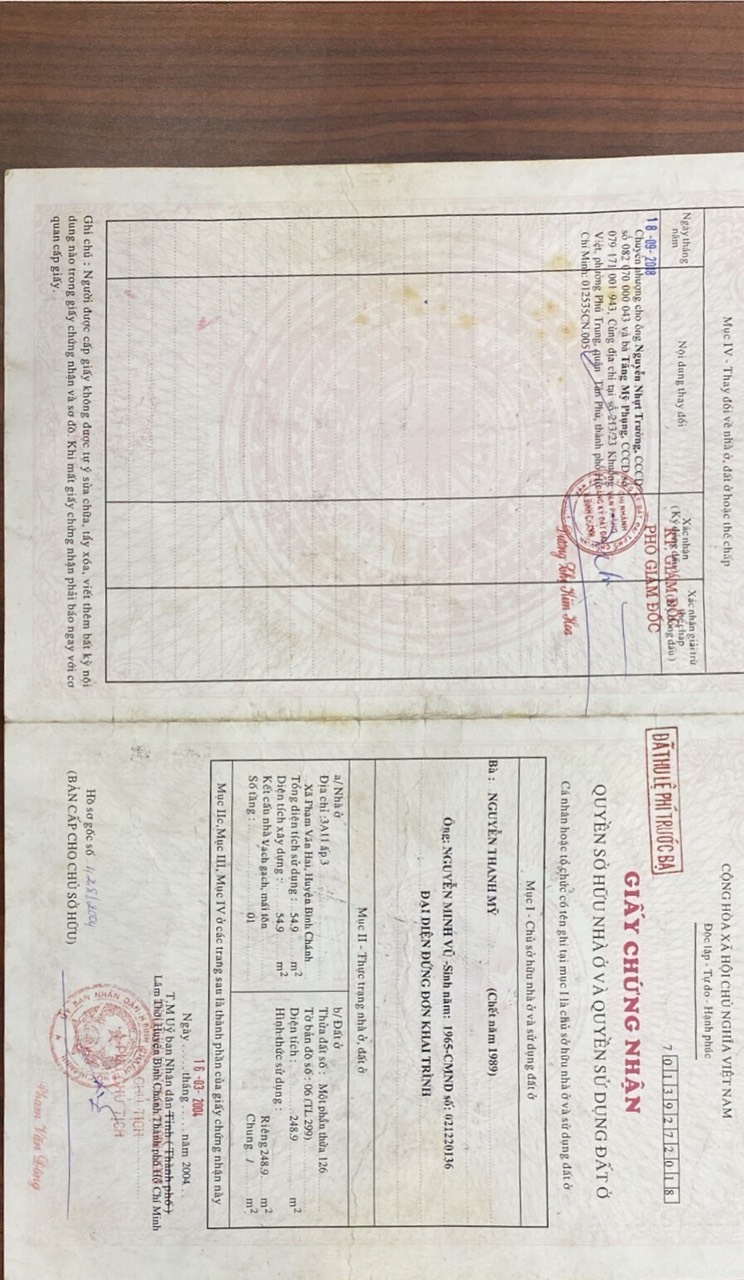 CỘNG HÒA XÃ HỘI CHỦ NGHĨA VIỆT NAM
Độc lập - Tự do - Hạnh phúc
7 0 1 3 9 2 7 2 0 1 8
ĐÃ THU LỆ PHÍ TRƯỚC BẠ
GIẤY CHỨNG NHẬN
QUYỀN SỞ HỮU NHÀ Ở VÀ QUYỀN SỬ DỤNG ĐẤT Ở
Cá nhân hoặc tổ chức có tên ghi tại mục I là chủ sở hữu nhà ở và sử dụng đất ở
Mục I - Chủ sở hữu nhà ở và sử dụng đất ở
Bà : NGUYỄN THANH MỸ (Chết năm 1989)
Ông: NGUYỄN MINH VŨ -Sinh năm: 1965-CMND số: 021220136
ĐẠI DIỆN ĐỨNG ĐƠN KHAI TRÌNH
Mục II - Thực trạng nhà ở, đất ở
a/ Nhà ở
Địa chỉ :3A11 ấp 3
Xã Phạm Văn Hai, Huyện Bình Chánh
Tổng diện tích sử dụng : 54.9 m2
Diện tích xây dựng : 54.9 m2
Kết cấu nhà Vách gạch, mái tôn
Số tầng : 01
b/ Đất ở
Thửa đất số : Một phần thửa 126
Tờ bản đồ số : 06 (TL.299)
Diện tích : 248.9 m2
Hình thức sử dụng :
Riêng 248.9 m2
Chung / m2
Mục IIc, Mục III, Mục IV ở các trang sau là thành phần của giấy chứng nhận này
16-03-2004
Ngày ..... tháng ..... năm 2004 . .
T.M Uỷ ban Nhân dân Tỉnh ( Thành phố )
Lâm Thời Huyện Bình Chánh Thành phố Hồ Chí Minh
CHỦ TỊCH
Phạm Văn Đông
Hồ sơ gốc số 428/2004
(BẢN CẤP CHO CHỦ SỞ HỮU)
Mục IV - Thay đổi về nhà ở, đất ở hoặc thế chấp
Ngày tháng năm
Nội dung thay đổi
Xác nhận
( Ký đóng dấu )
Xác nhận giải trừ
thế chấp
( Ký đóng dấu )
18-09-2018
Chuyển nhượng cho ông Nguyễn Nhựt Trường, CCCD
số 082 070 000 043 và bà Tăng Mỹ Phụng, CCCD số
079 171 001 943, Cùng địa chỉ tại số 213/23 Khuông
Việt, phường Phú Trung, quận Tân Phú, thành phố Hồ
Chí Minh: 012535CN.005
KT GIÁM ĐỐC
PHÓ GIÁM ĐỐC
Dương Thị Kim Hoa
Ghi chú : Người được cấp giấy không được tự ý sửa chữa, tẩy xóa, viết thêm bất kỳ nội
dung nào trong giấy chứng nhận và sơ đồ. Khi mất giấy chứng nhận phải báo ngay với cơ
quan cấp giấy.